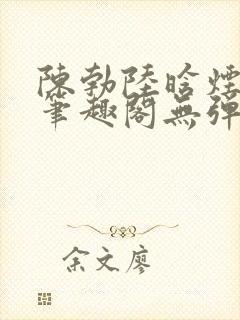 陳勃陸晗煙
筆趣閣無彈
余文廖